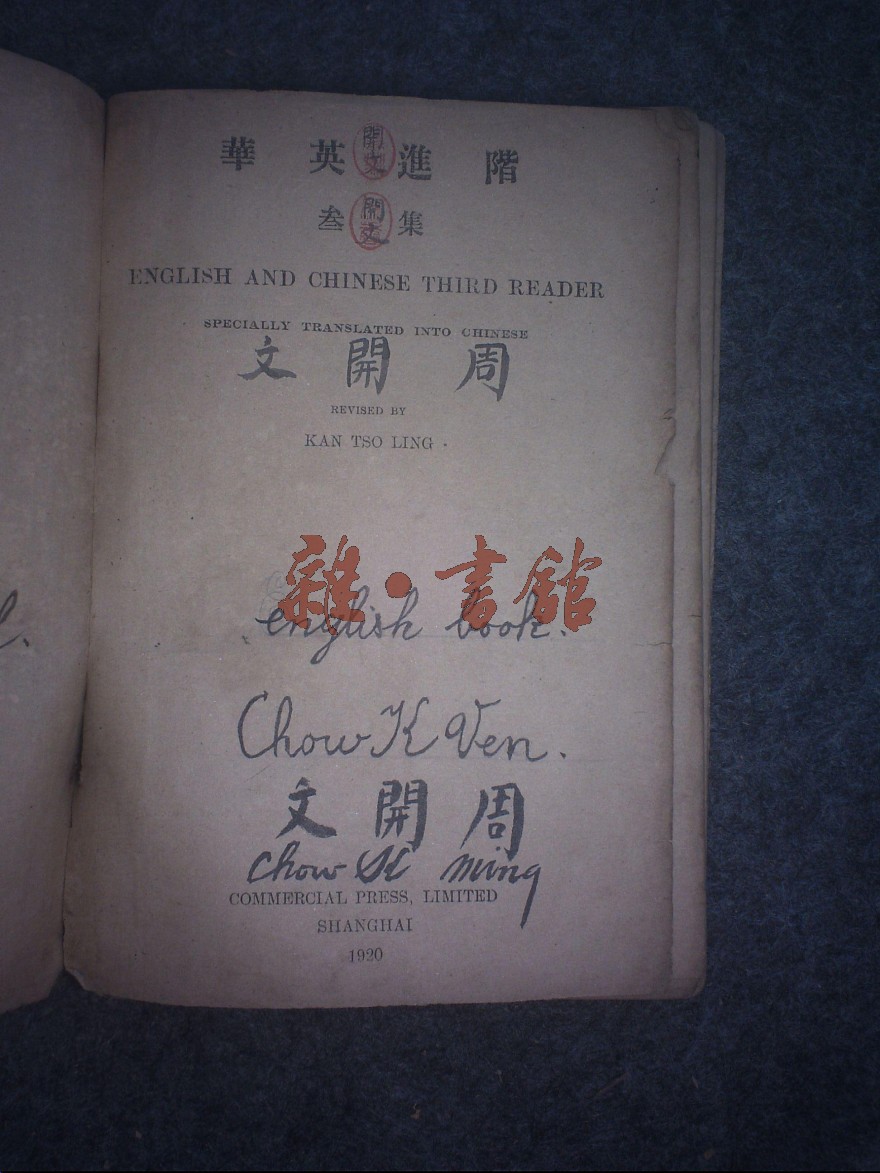 華英進階
開文
叁集
開文
ENGLISH AND CHINESE THIRD READER
SPECIALLY TRANSLATED INTO CHINESE
文開周
REVISED BY
KAN TSO LING
雜·書館
english book.
Chow K Ven.
文開周
Chow K ming
COMMERCIAL PRESS, LIMITED
SHANGHAI
1920